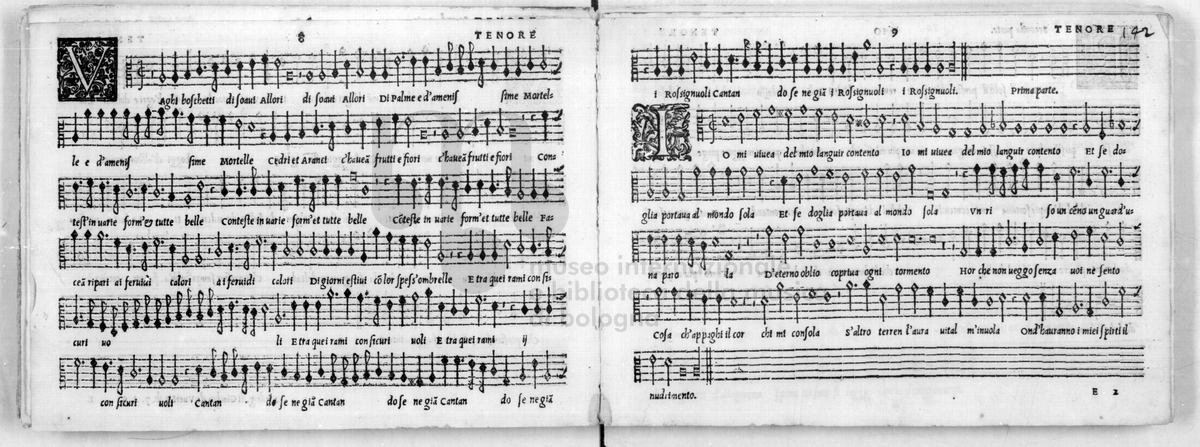 8
TENORE
VAghi boschetti di soaui Allori di soaui Allori Di Palme e d'amenis sime Mortel-
le e d'amenis sime Mortelle Cedri et Aranci c'haueã frutti e fiori c'haueã frutti e fiori Con-
test'in uarie form'& tutte belle Conteste in uarie form'et tutte belle Cõteste in uarie form'et tutte belle Fa-
ceã ripari ai feruiui calori ai feruidi calori Di giorni estiui cõ lor spess'ombrelle E tra quei rami con sis
curi uo li E tra quei rami con sicuri uoli E tra quei rami ij
con sicuri uoli Cantan do se ne giã Cantan do se ne giã Cantan do se ne giã
9
TENORE
142
i Rossignuoli Cantan do se ne giã i Rossignuoli i Rossignuoli. Prima parte.
IO mi uiuea del mio languir contento Io mi uiuea del mio languir contento Et se do-
glia portaua al mondo sola Et se doglia portaua al mondo sola Vn ri so un cẽno un guard'u-
na paro la D'eterno oblio copriua ogni tormento Hor che non ueggo senza uoi ne sento
Cosa ch'appaghi il cor chi mi consola S'altro terren l'aura uital m'inuola Ond'hauranno i miei spirti il
nudrimento.
E 2
museo internazionale
e biblioteca della musica
di bologna